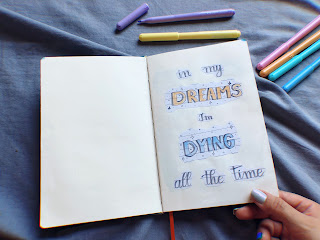 in my
DREAMS
I'm
DYING
all the time